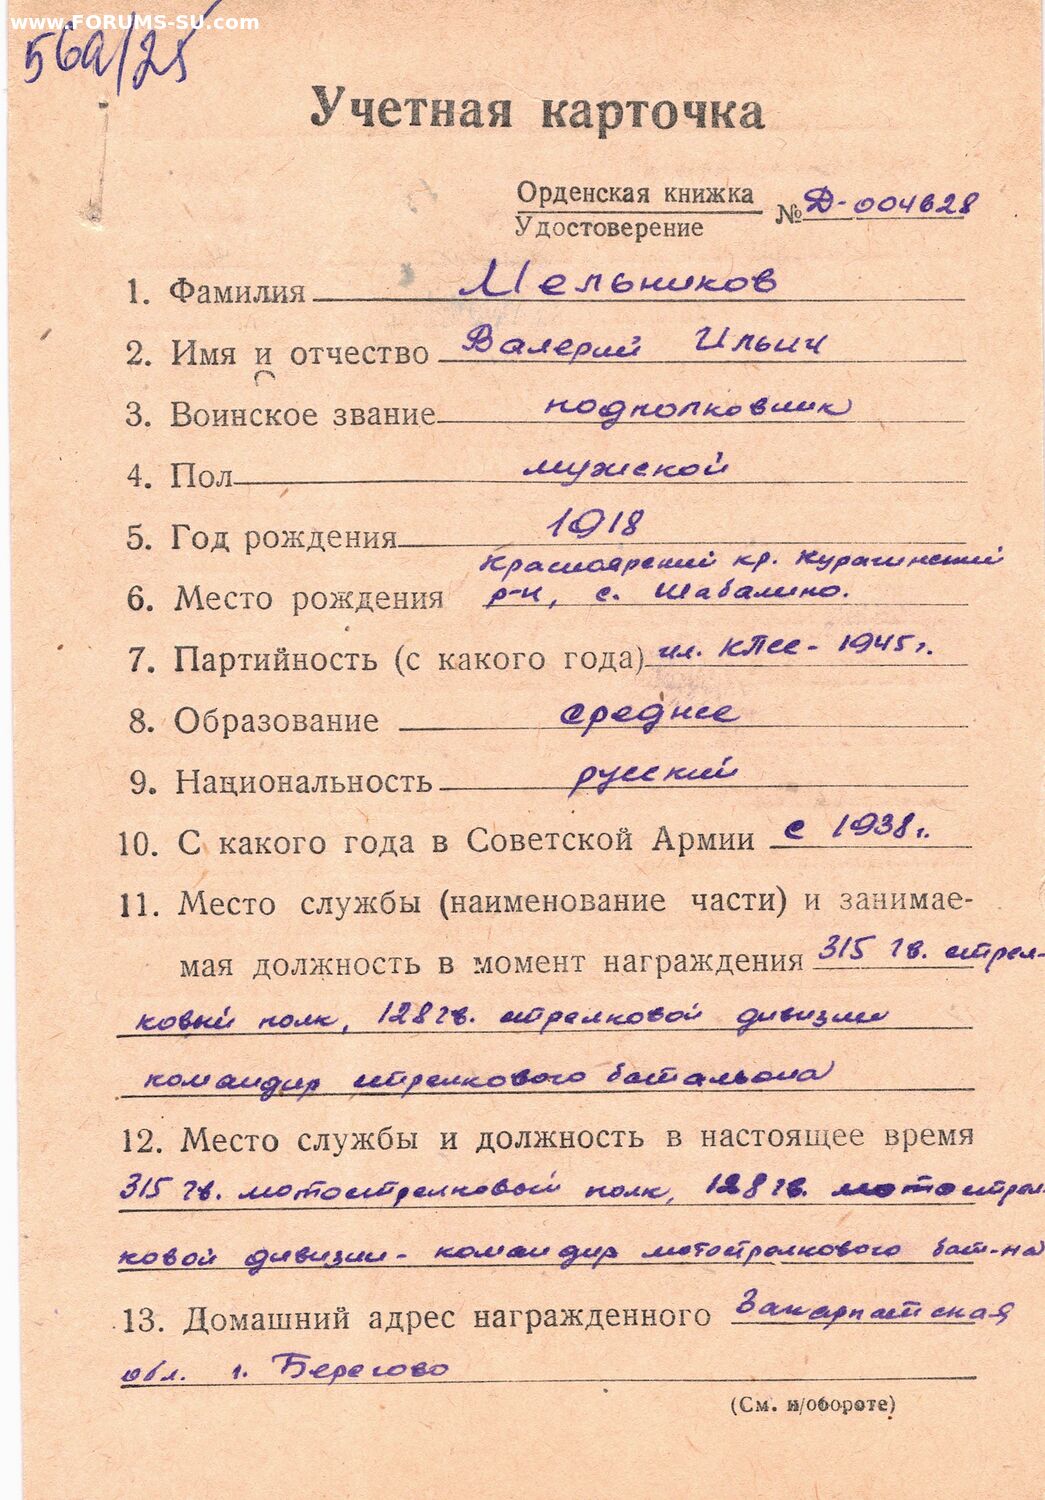 www.FORUMS-SU.com
56а/25
Учетная карточка
Орденская книжка
Удостоверение
№ Д-004628
1. Фамилия Мельников
2. Имя и отчество Валерий Ильич
3. Воинское звание подполковник
4. Пол мужской
5. Год рождения 1918
Красноярский кр. Курагинский
6. Место рождения р-н, с. Шабалино.
7. Партийность (с какого года) чл. КПСС - 1945 г.
8. Образование среднее
9. Национальность русский
10. С какого года в Советской Армии с 1938 г.
11. Место службы (наименование части) и занимае-
мая должность в момент награждения 315 гв. стрел-
ковый полк, 128 гв. стрелковой дивизии
командир стрелкового батальона
12. Место службы и должность в настоящее время
315 гв. мотострелковый полк, 128 гв. мотострел-
ковой дивизии - командир мотострелкового бат-на
13. Домашний адрес награжденного Закарпатская
обл. г. Берегово
(См. н/обороте)